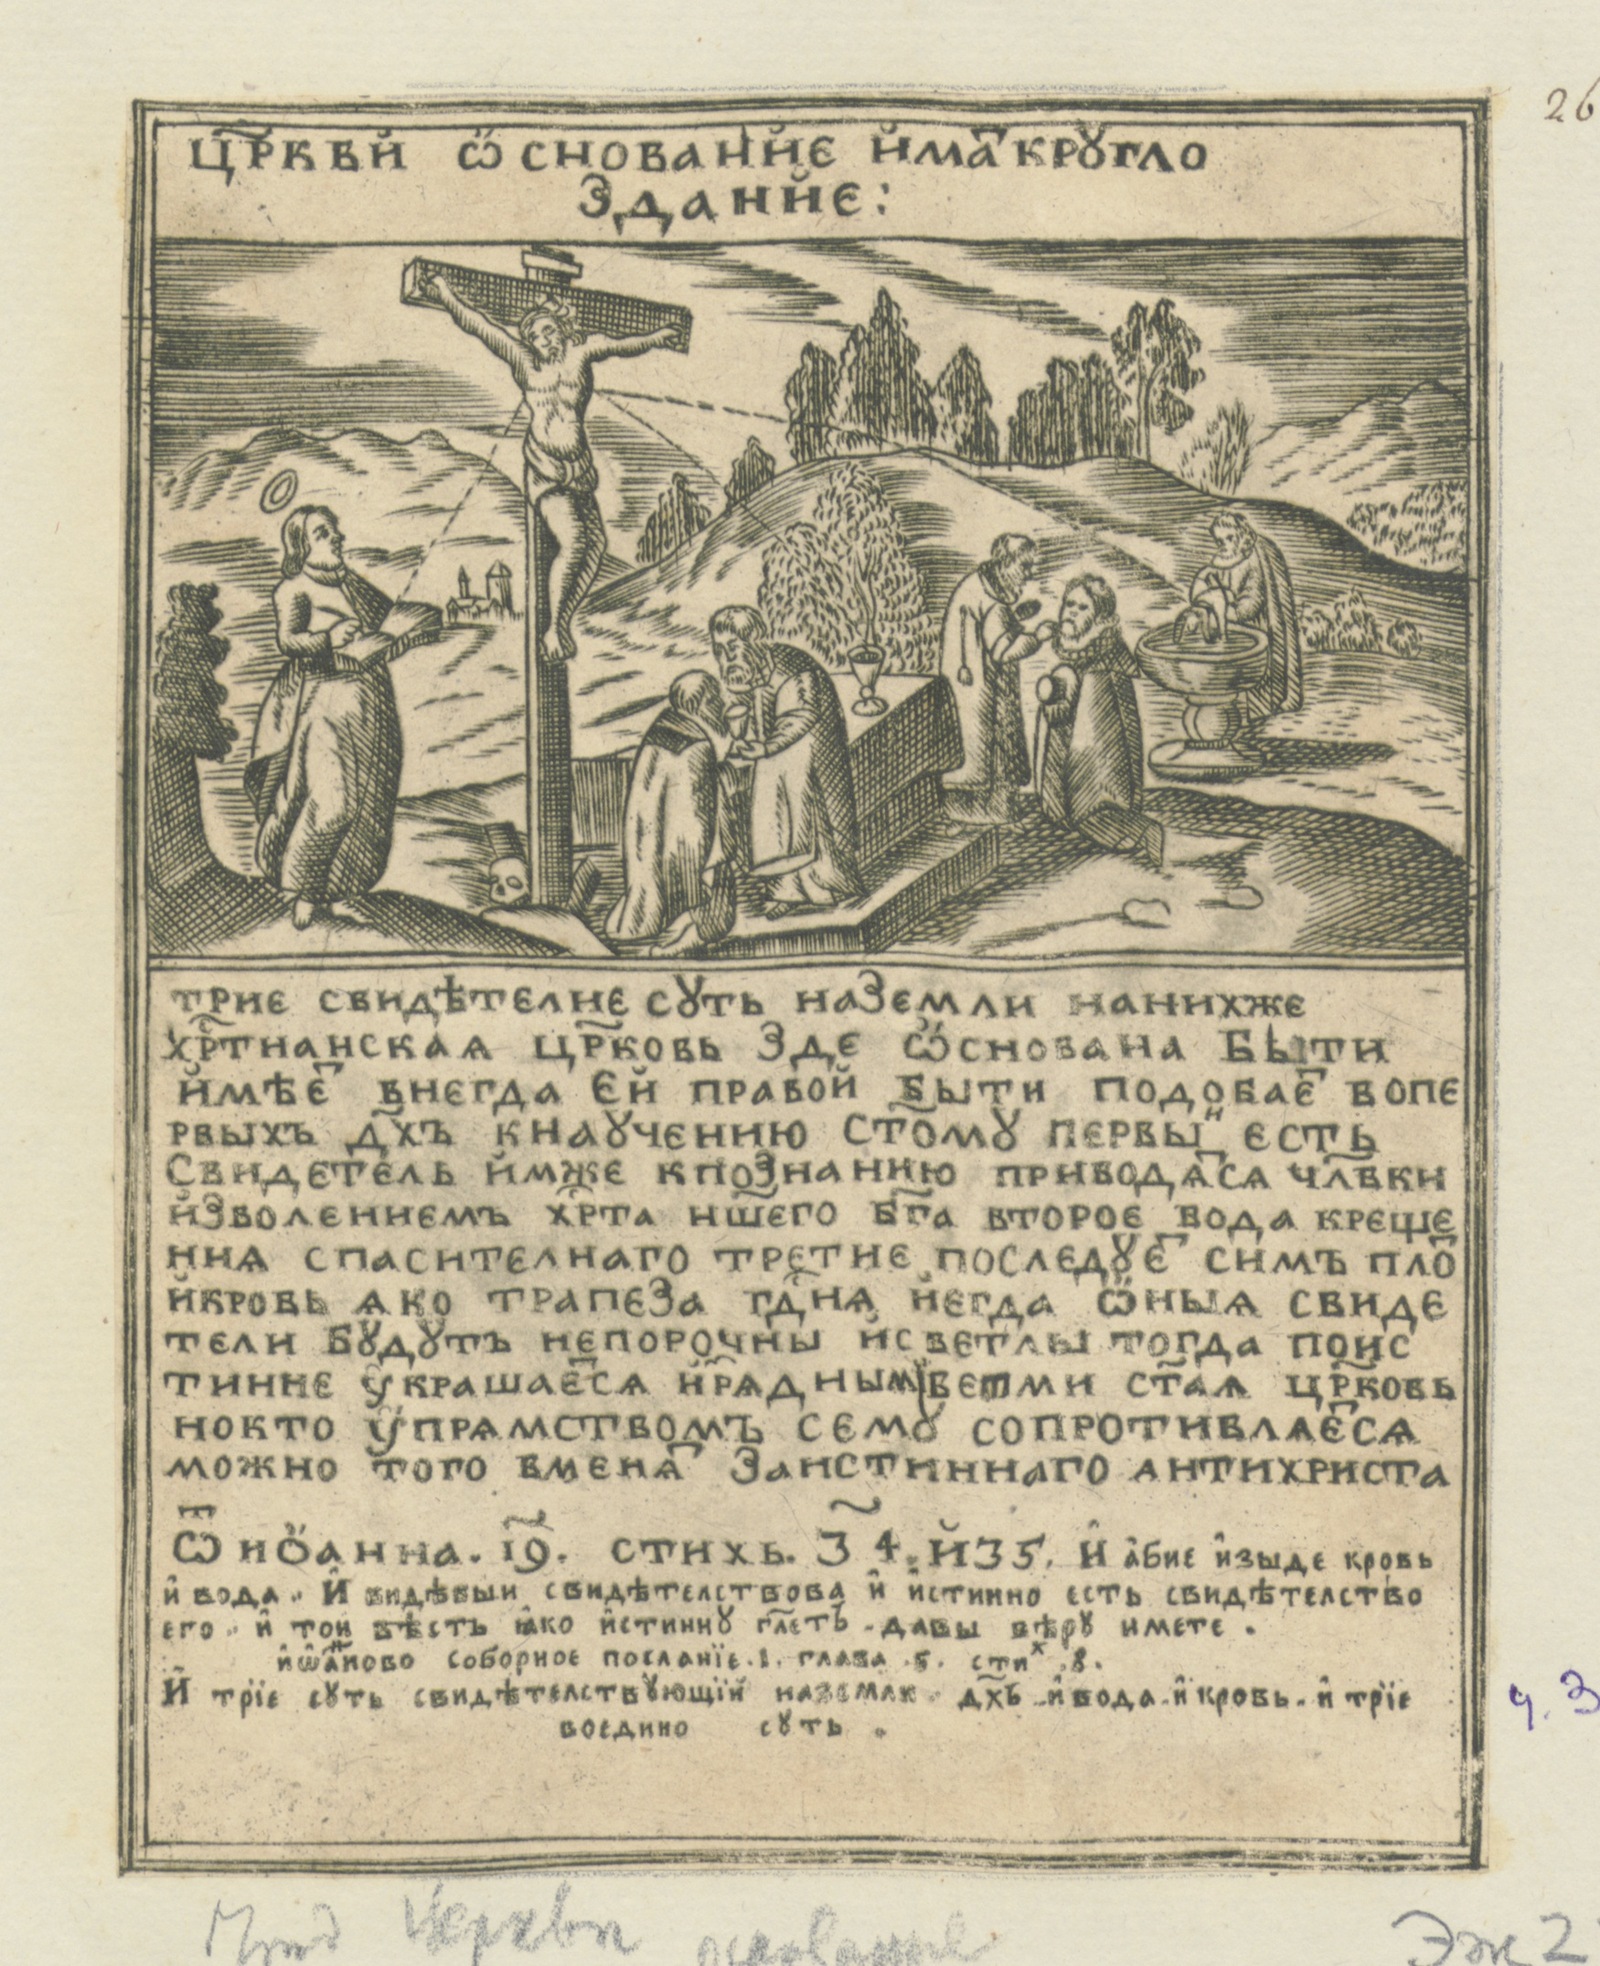 26
цр҃кви ѡ҆снованн҆іє и҆ма кроугло
зданн҆іє:
триє свидѣтєлиє сꙋть наземли нанихжє
хр҃тианская цр҃ковь здє ѡ҆снована быти
и҆мѣє внєгда єй правой быти подобаєт вопє
рвыхъ дх҃ъ кнаꙋчєнию ст҃омꙋ пєрвыи єсть
свидєтєль и҆мжє кпознанию приводятся чл҃вки
и҆зволєниємъ хр҃та нш҃єго бг҃а второє вода крєщє
ния спаситєлнаго трєтиє послєдꙋєт симъ пло
и҆кровь яко трапєза гд҃ня нєгда ѡ҆ныя свидє
тєли бꙋдꙋть нєпорочны и҆свєтлы тогда поис
тиннє ꙋкрашаєтся и҆ ст҃ая цр҃ковь
нокто ꙋпрямствомъ сємꙋ сопротивляєтся
можно того вмєнят заистиннаго антихриста
ѿ иѻанна. 19. стихъ. 34. и҆35. И҆ а҆биє и҆зыдє кровь
и҆ вода. И҆ видѣвыи свидѣтєлствова и҆ и҆стинно єсть свидѣтєлство
єго. и҆ той вѣсть ꙗко и҆стиннꙋ гл҃єтъ. давы вѣрꙋ имєтє.
и҆ѡ҆аново соборноє посланїє. 1. глава. 5. стих. 8.
И҆ трїє сꙋть свидѣтєлствꙋющїй наземли. дх҃ъ. и҆ вода. и҆ кровь. и҆ трїє
воєдино сꙋть.
ч. 3
церкви основание
Эж 2